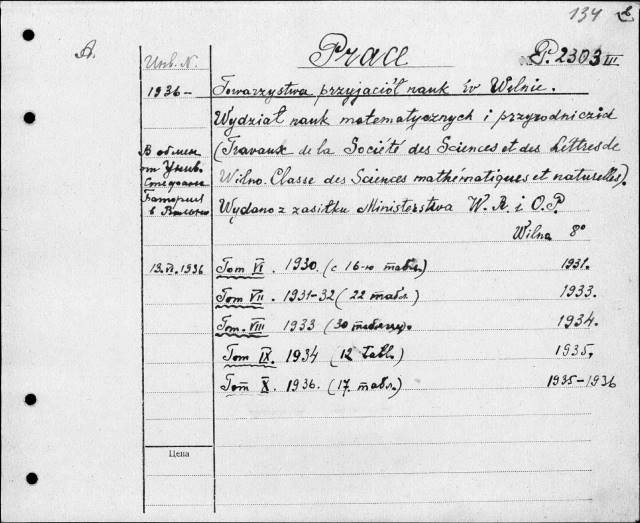 134
А.
Инв. N.
Prace
P. 2303 III
1936 –
Towarzystwa przyjaciół nauk w Wilnie.
Wydział nauk matematycznych i przyrodniczych
(Travaux de la Société des Sciences et des Lettres de
Wilno. Classe des Sciences mathématiques et naturelles).
Wydano z zasiłku Ministerstwa W. R. i O. P.
Wilno 8°
В обмен
от Унив.
Стефана
Батория
в Вильно
19.VI.1936
Tom VI. 1930. (с 16-ю табл.) 1931.
Tom VII. 1931-32 (22 табл.) 1933.
Tom. VIII 1933 (30 таблиц). 1934.
Tom IX. 1934 (12 tabl.) 1935.
Tom X. 1936. (17. табл.) 1935-1936
Цена